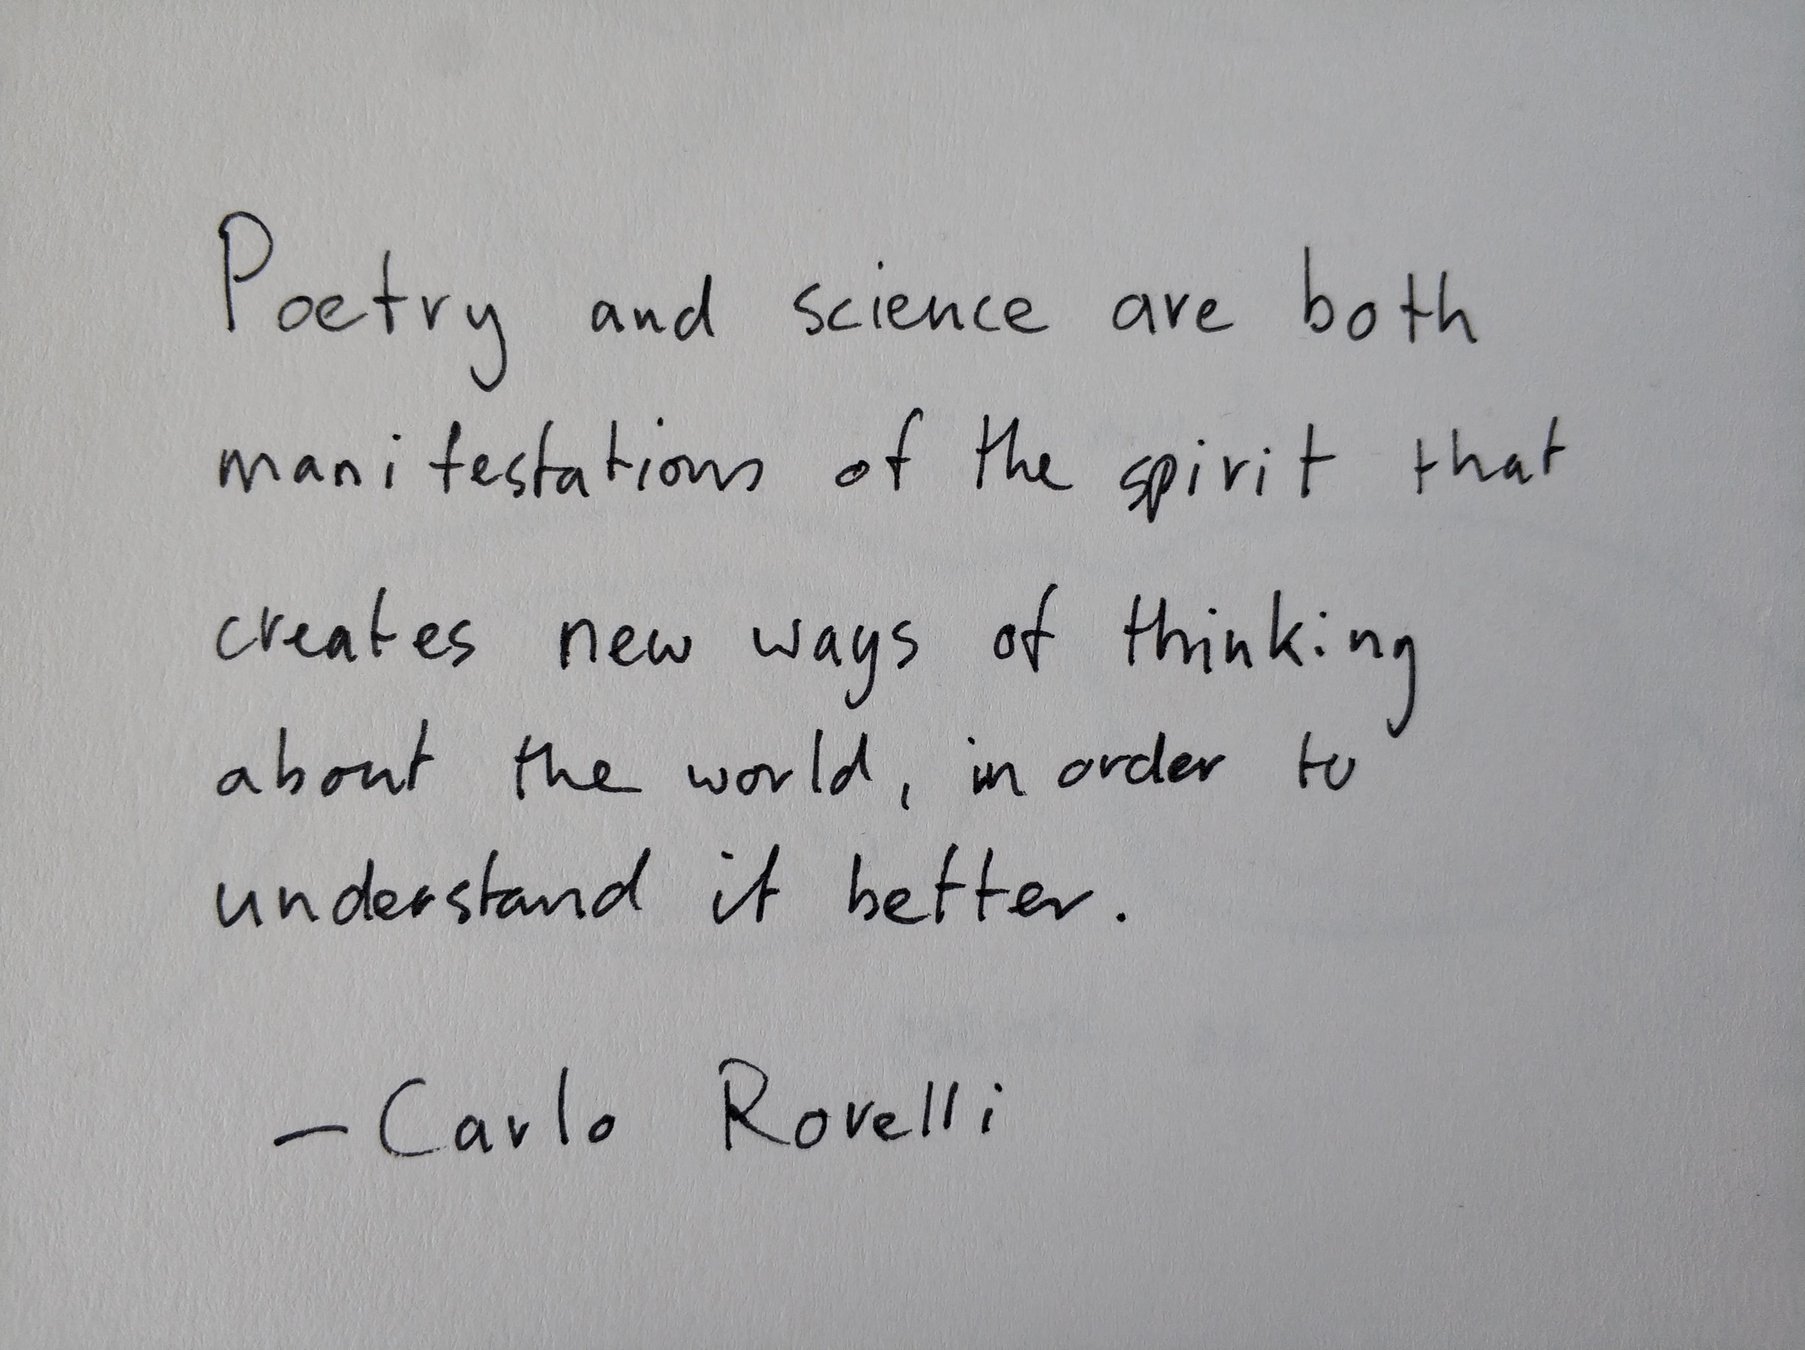 Poetry and science are both
manifestations of the spirit that
creates new ways of thinking
about the world, in order to
understand it better.
— Carlo Rovelli